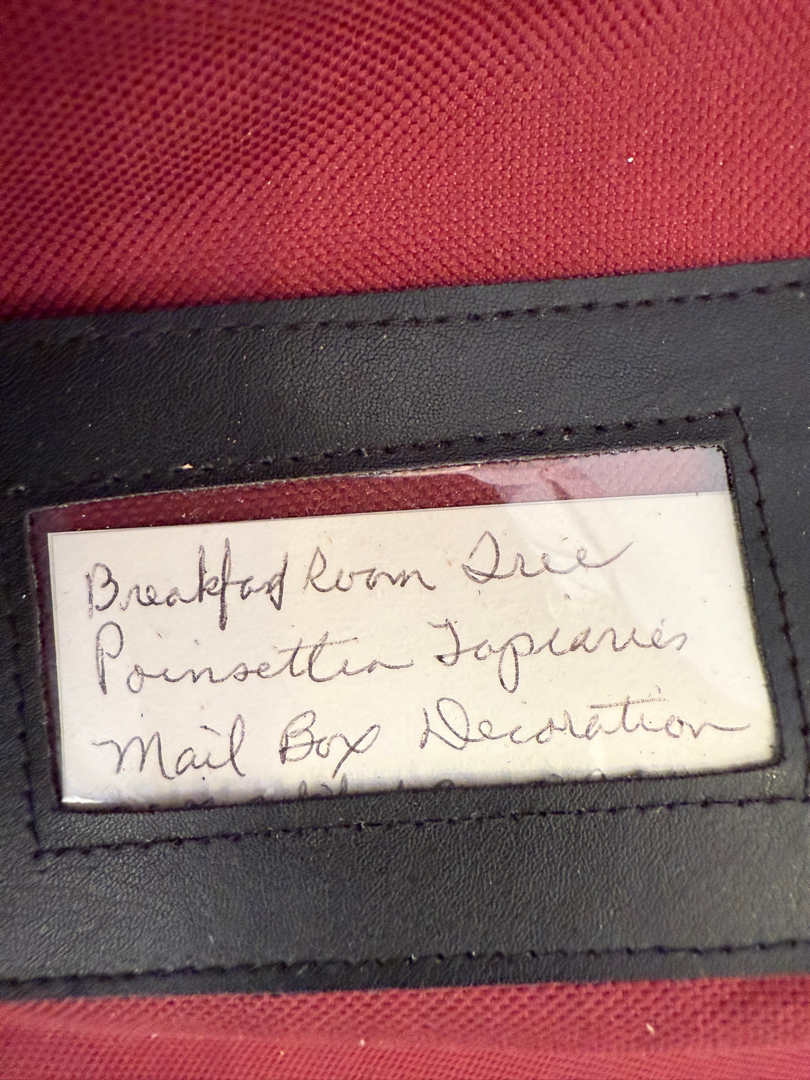 Breakfast Room Tree
Poinsettia Topiaries
Mail Box Decoration